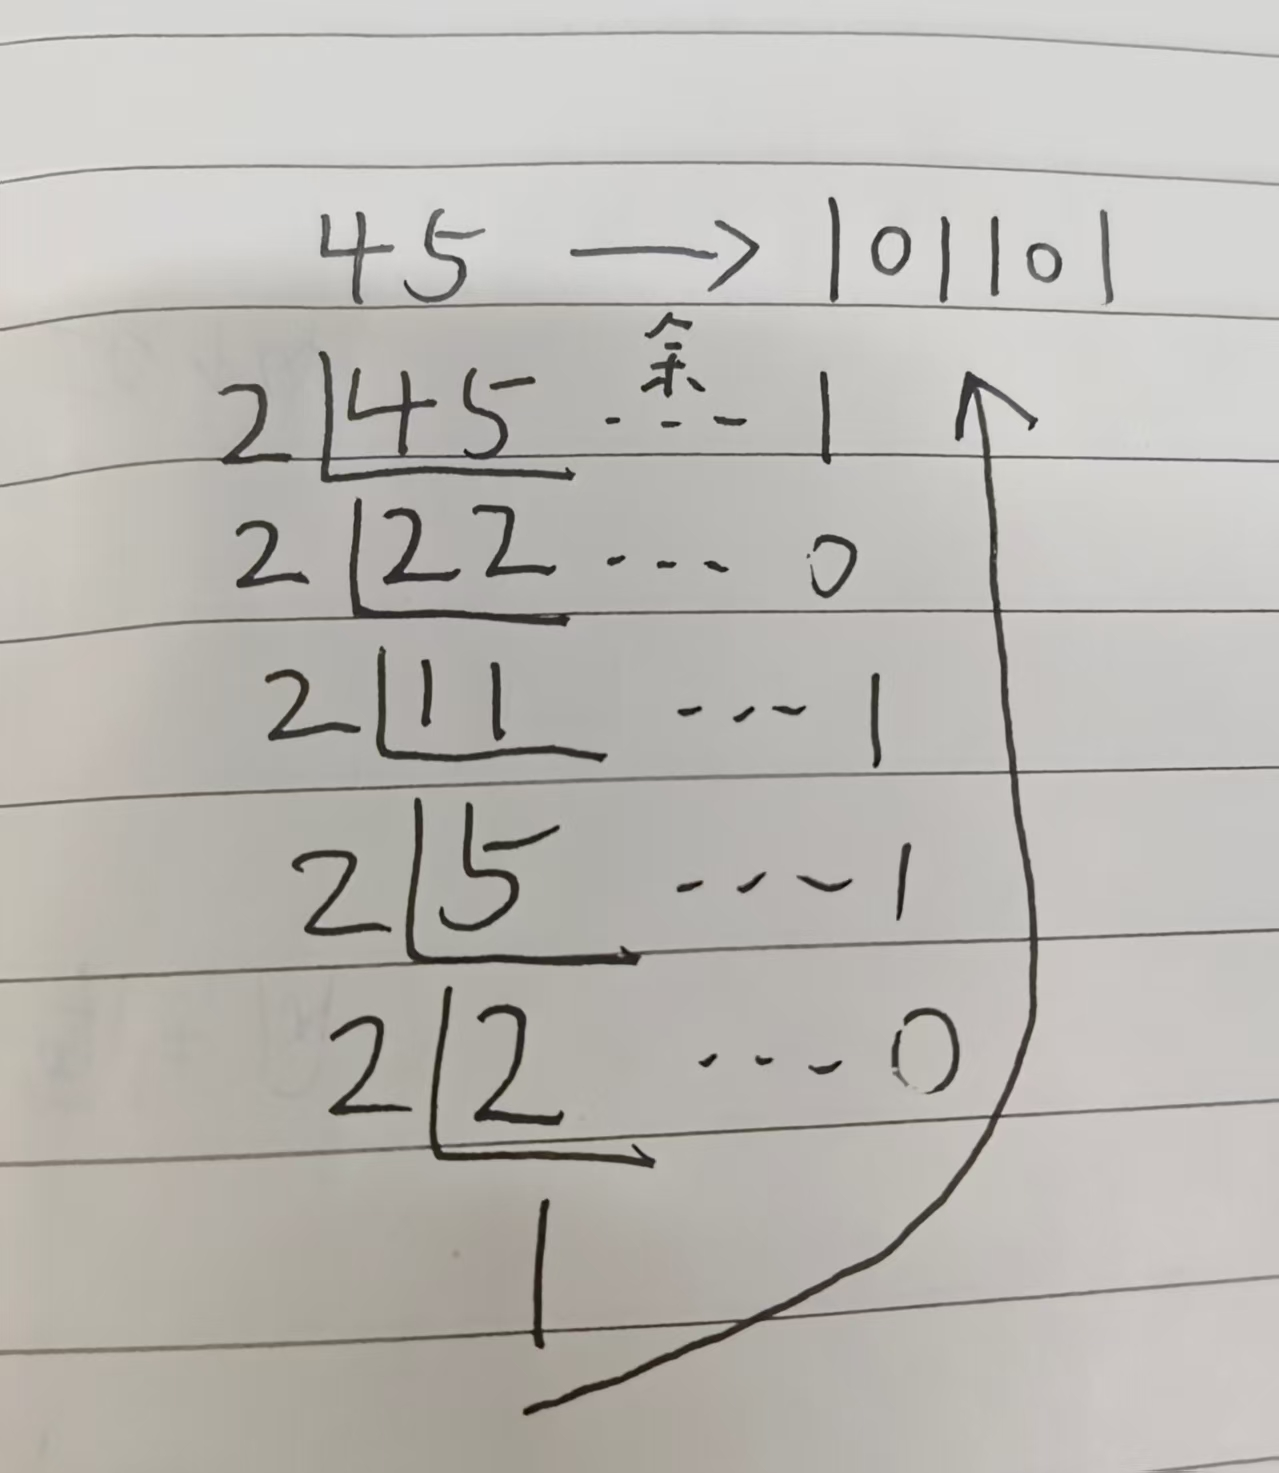 45 → 101101
余
2 45 --- 1
2 22 --- 0
2 11 --- 1
2 5 --- 1
2 2 --- 0
1